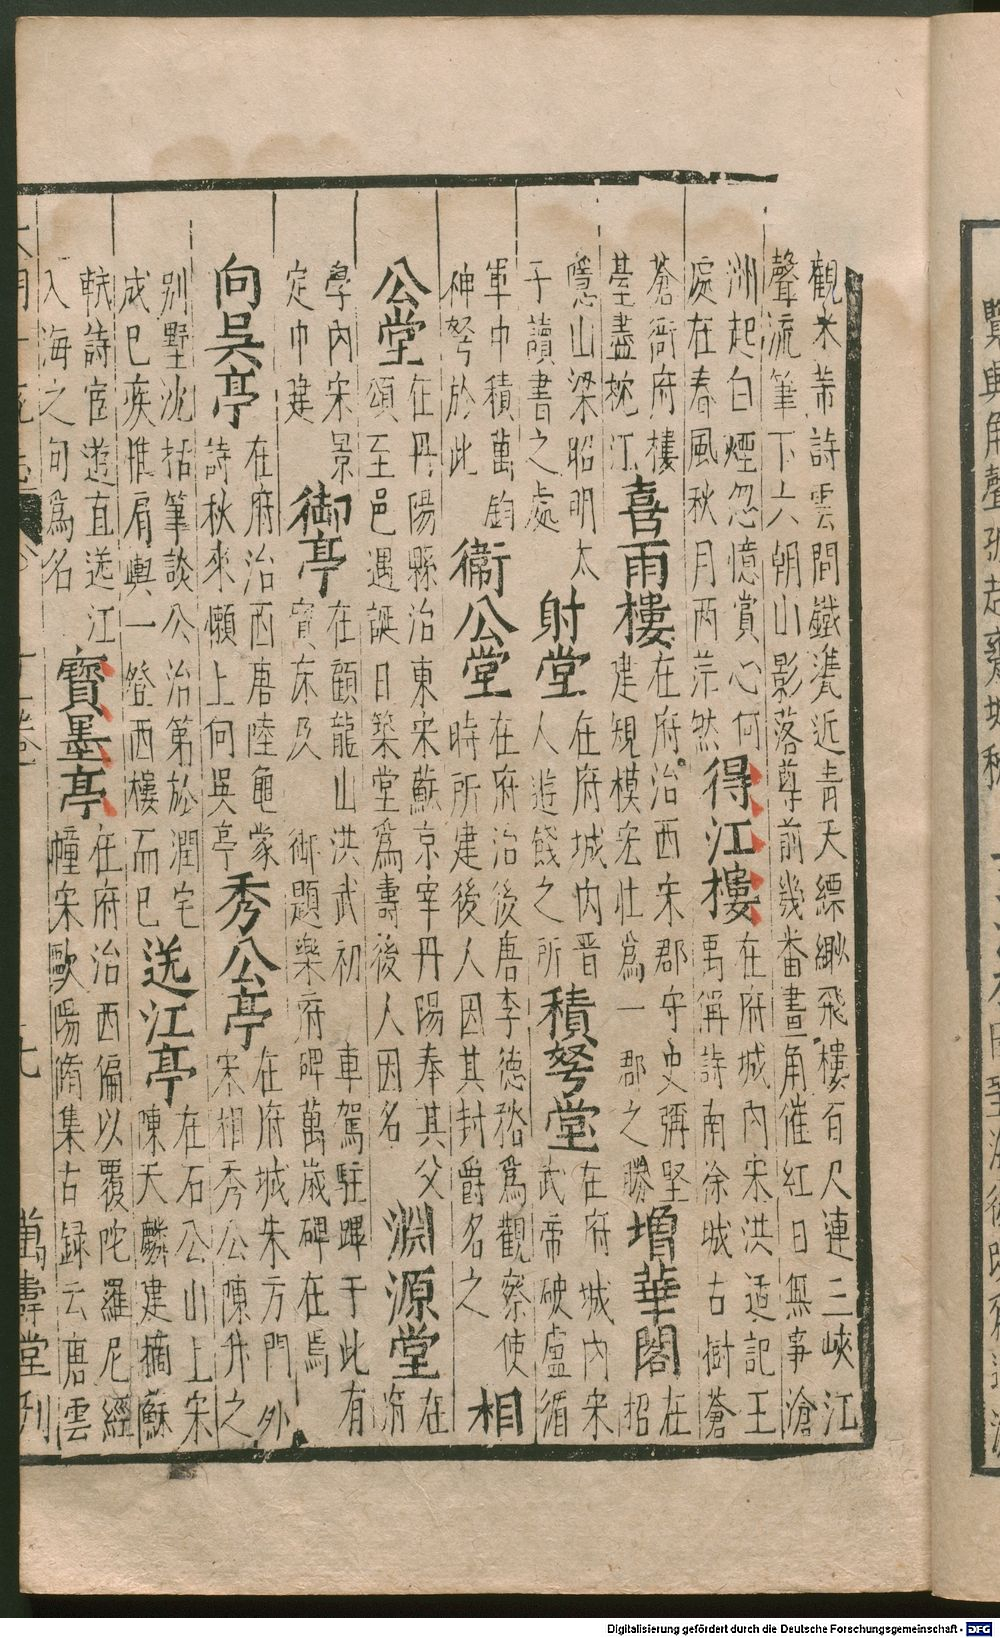 觀米芾詩雲間鐵甕近青天縹緲飛樓百尺連三峽江
聲流筆下六朝山影落尊前幾番畫角催紅日無事滄
洲起白煙忽憶賞心何
處在春風秋月兩茫然
得江樓
在府城內宋洪适記王
禹偁詩南徐城古樹蒼
蒼衙府樓
臺盡枕江
喜雨樓
在府治西宋郡守史彌堅
建規模宏壯為一郡之勝
增華閣
在
招
隱山梁昭明太
子讀書之處
射堂
在府城內晋
人遊餞之所
積弩堂
在府城內宋
武帝破盧循
軍中積萬鈞
神弩於此
衞公堂
在府治後唐李德裕為觀察使
時所建後人因其封爵名之
相
公堂
在丹陽縣治東宋蘇京宰丹陽奉其父
頌至邑遇誕日築堂為壽後人因名
淵源堂
在
府
學內宋景
定中建
御亭
在顧龍山洪武初 車駕駐蹕于此有
寶床及 御題樂府碑萬歲碑在焉
向吳亭
在府治西唐陸龜蒙
詩秋來懶上向吳亭
秀公亭
在府城朱方門外
宋相秀公陳升之
別墅沈括筆談公治第於潤宅
成已疾惟肩輿一登西樓而已
送江亭
在石公山上宋
陳天麟建摘蘇
軾詩宦遊直送江
入海之句為名
寶墨亭
在府治西偏以覆陀羅尼經
幢宋歐陽脩集古録云唐雲
萬壽堂刊
Digitalisierung gefördert durch die Deutsche Forschungsgemeinschaft - DFG